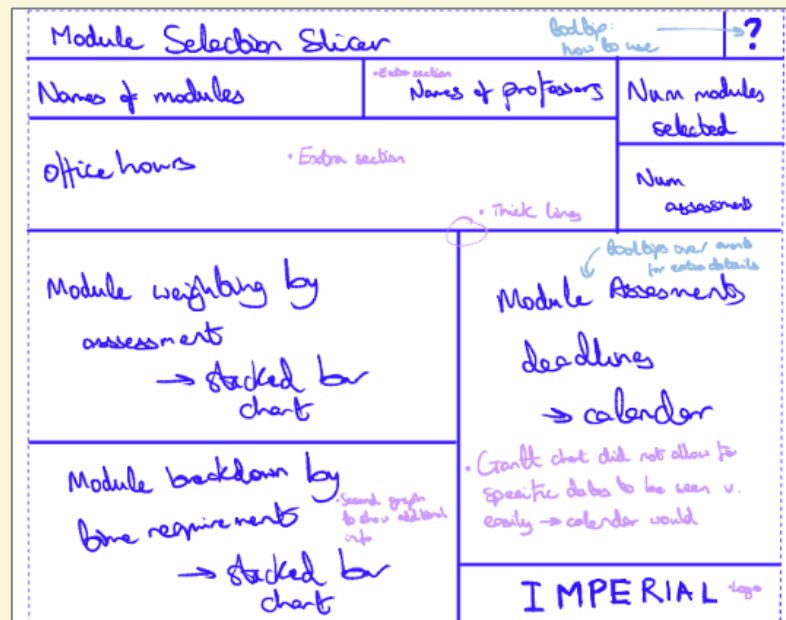 Module Selection Slicer
tooltip:
how to use
?
Names of modules
• Extra section
Names of professors
Num modules
selected
Office hours
• Extra section
Num
assessments
• Thick lines
Module weighting by
assessment
→ stacked bar
chart
tooltips over events
for extra details
Module Assesments
deadlines
→ calender
• Gantt chart did not allow for
specific dates to be seen v.
easily → calender would
Module backdown by
time requirements
• Second graph
to show additional
info
→ stacked bar
chart
IMPERIAL
• Logo